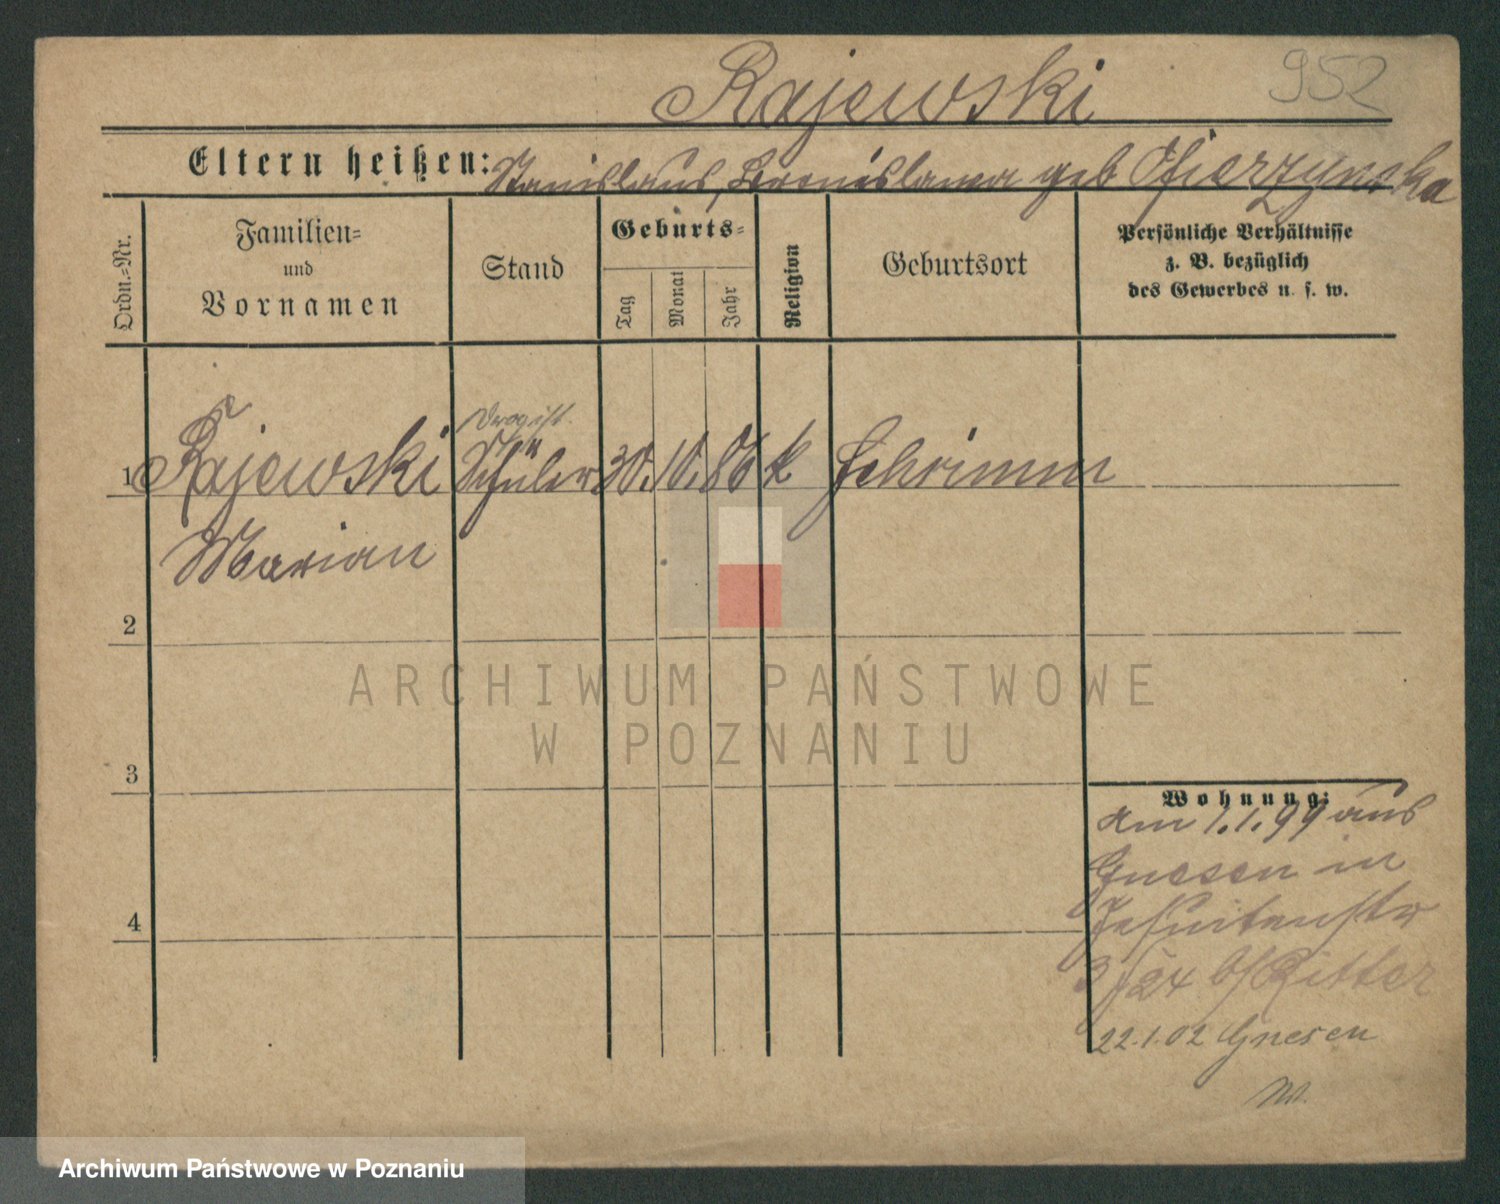 Rajewski 952
Eltern heißen: Stanislaus, Bronislawa geb Ofierzynska
Ordn.=Nr.
Familien=
und
Vornamen
Stand
Geburts=
Tag Monat Jahr
Religion
Geburtsort
Persönliche Verhältnisse
z. B. bezüglich
des Gewerbes u. s. w.
Drogist.
1 Rajewski Schüler 30. 10. 86 k Schrimm
Marian
2
3
4
Wohnung:
am 1.1.99 aus
Gnesen in
Jesuitenstr
24 b/ Ritter
22.1.02 Gnesen
ARCHIWUM PAŃSTWOWE
W POZNANIU
Archiwum Państwowe w Poznaniu